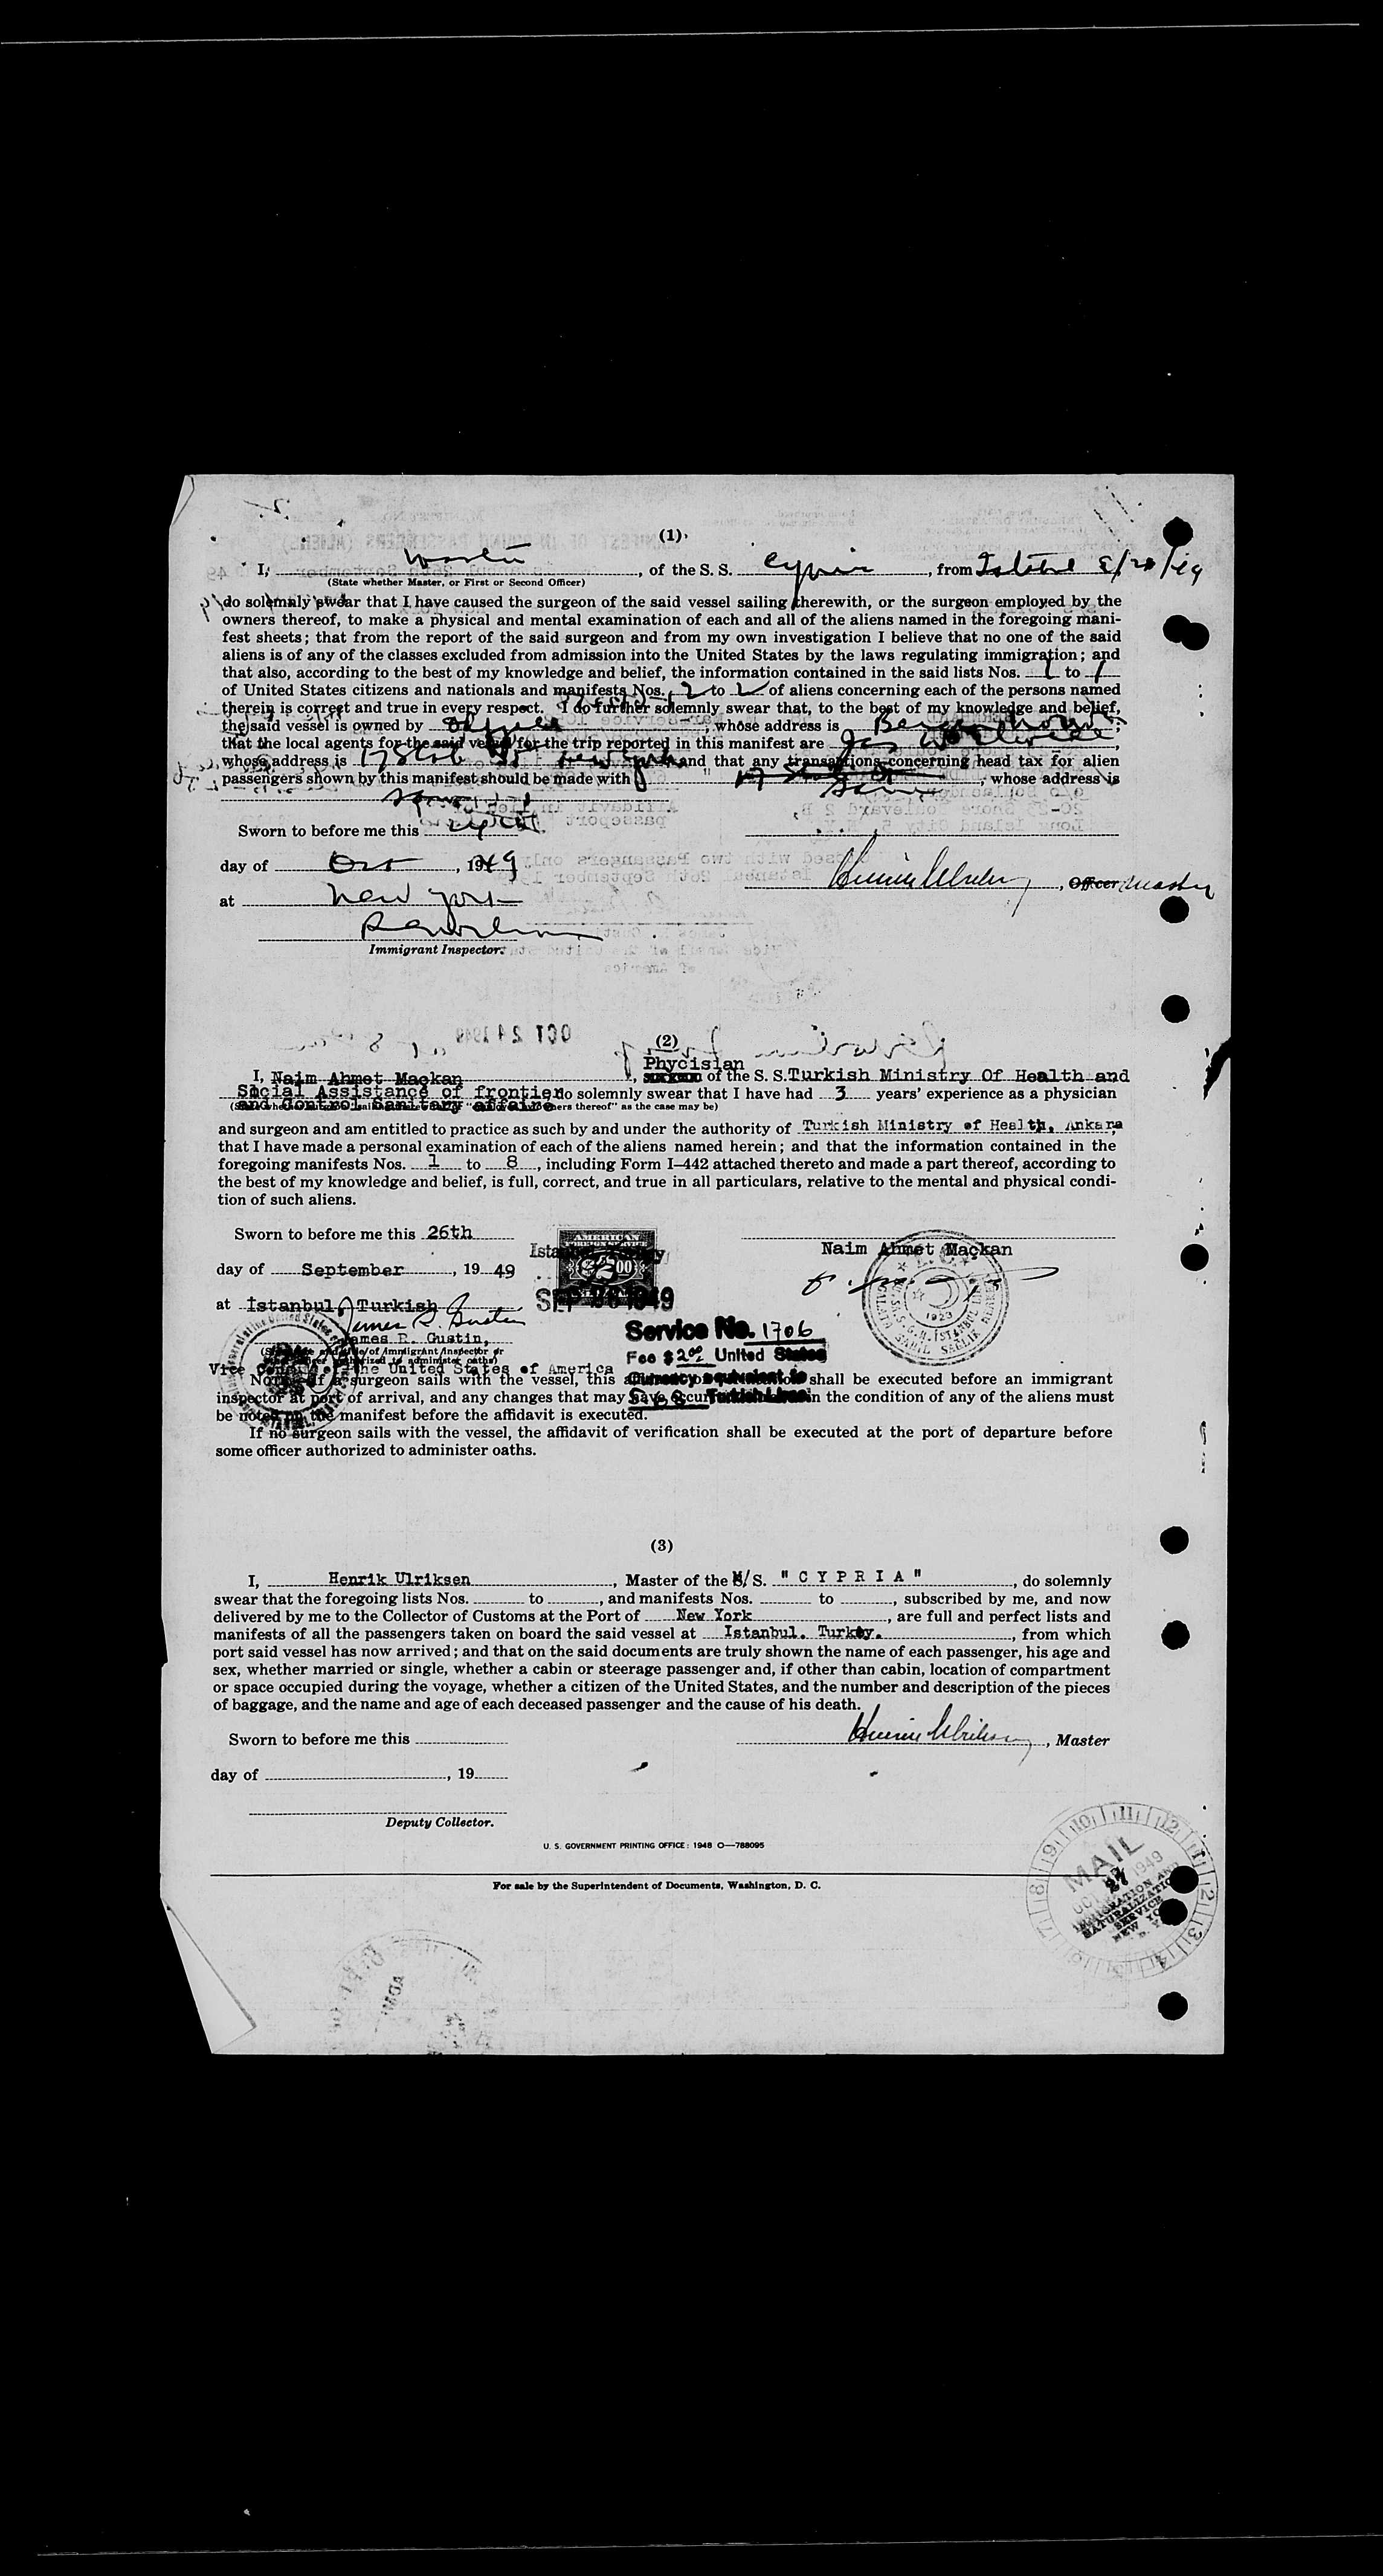 (1)
I, Master, of the S. S. Cypria, from
(State whether Master, or First or Second Officer)
do solemnly swear that I have caused the surgeon of the said vessel sailing therewith, or the surgeon employed by the
owners thereof, to make a physical and mental examination of each and all of the aliens named in the foregoing mani-
fest sheets; that from the report of the said surgeon and from my own investigation I believe that no one of the said
aliens is of any of the classes excluded from admission into the United States by the laws regulating immigration; and
that also, according to the best of my knowledge and belief, the information contained in the said lists Nos. 1 to 1
of United States citizens and nationals and manifests Nos. 2 to 2 of aliens concerning each of the persons named
therein is correct and true in every respect. I do further solemnly swear that, to the best of my knowledge and belief,
the said vessel is owned by , whose address is
that the local agents for the said vessel for the trip reported in this manifest are
whose address is 17 State St New York and that any transactions concerning head tax for alien
passengers shown by this manifest should be made with , whose address is
Same
Sworn to before me this
day of Oct, 1949
, Officer Master
at New York
Immigrant Inspector.
OCT 24 1949
(2)
Phycisian
I, Naim Ahmet Mackan, of the S. S. Turkish Ministry Of Health and
Social Assistance of frontier do solemnly swear that I have had 3 years' experience as a physician
and Control Sanitary affaire
ners thereof" as the case may be)
and surgeon and am entitled to practice as such by and under the authority of Turkish Ministry of Health, Ankara
that I have made a personal examination of each of the aliens named herein; and that the information contained in the
foregoing manifests Nos. 1 to 8, including Form I-442 attached thereto and made a part thereof, according to
the best of my knowledge and belief, is full, correct, and true in all particulars, relative to the mental and physical condi-
tion of such aliens.
Sworn to before me this 26th
Naim Ahmet Maçkan
day of September, 19 49
at İstanbul, Turkish
James R. Gustin
James R. Gustin,
Service No. 1706
Fee $2.00 United States
Currency equivalent to
Vice Consul of the United States of America
Note.—If a surgeon sails with the vessel, this shall be executed before an immigrant
inspector at port of arrival, and any changes that may have occurred in the condition of any of the aliens must
be noted on the manifest before the affidavit is executed.
If no surgeon sails with the vessel, the affidavit of verification shall be executed at the port of departure before
some officer authorized to administer oaths.
(3)
I, Henrik Ulriksen, Master of the M/S. "CYPRIA", do solemnly
swear that the foregoing lists Nos. to , and manifests Nos. to , subscribed by me, and now
delivered by me to the Collector of Customs at the Port of New York, are full and perfect lists and
manifests of all the passengers taken on board the said vessel at Istanbul. Turkey., from which
port said vessel has now arrived; and that on the said documents are truly shown the name of each passenger, his age and
sex, whether married or single, whether a cabin or steerage passenger and, if other than cabin, location of compartment
or space occupied during the voyage, whether a citizen of the United States, and the number and description of the pieces
of baggage, and the name and age of each deceased passenger and the cause of his death.
Sworn to before me this
Henrik Ulriksen, Master
day of , 19
Deputy Collector.
U. S. GOVERNMENT PRINTING OFFICE: 1948 O—788095
For sale by the Superintendent of Documents, Washington, D. C.
MAIL
OCT 27 1949
IMMIGRATION AND
NATURALIZATION
SERVICE
NEW YORK